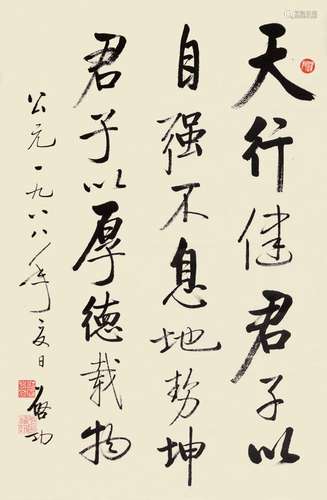 天行健君子以
自强不息地势坤
君子以厚德载物
公元一九八八年夏日
启功